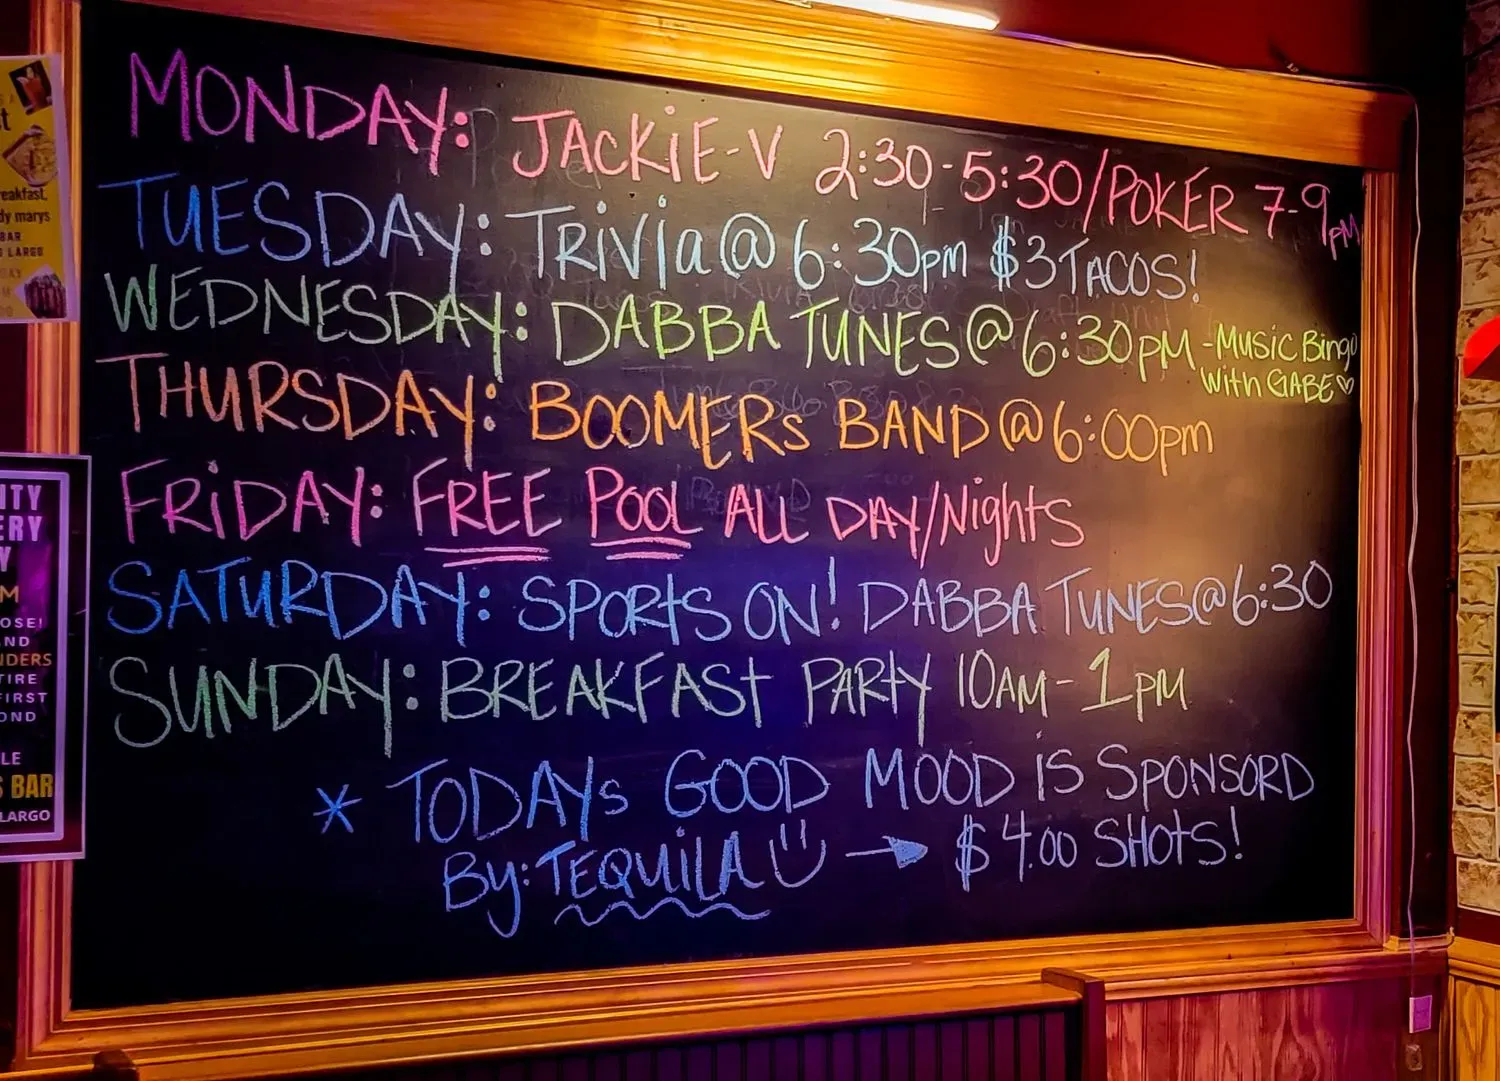 MONDAY: JACKiE-V 2:30-5:30/POKER 7-9pM
TUESDAY: TRiViа@6:30pm $3TACOS!
WEDNESDAY: DABBA TUNES@6:30pM -MUSiC BingO
With GABE♡
THURSDAY: BOOMERs BAND@6:00pm
FRiDAY: FREE POOL ALL DAY/Nights
SATURDAY: SPORtS ON! DABBA TUNES@6:30
SUNDAY: BREAKFASt PARtY 10AM-1PM
* TODAYs GOOD MOOD iS SPONSORD
By: TEQUiLA → $4.00 SHOtS!
eakfast,
dy marys
BAR
LARGO
ITY
ERY
Y
M
OSE!
ND
NDERS
TIRE
FIRST
OND
LE
S BAR
LARGO